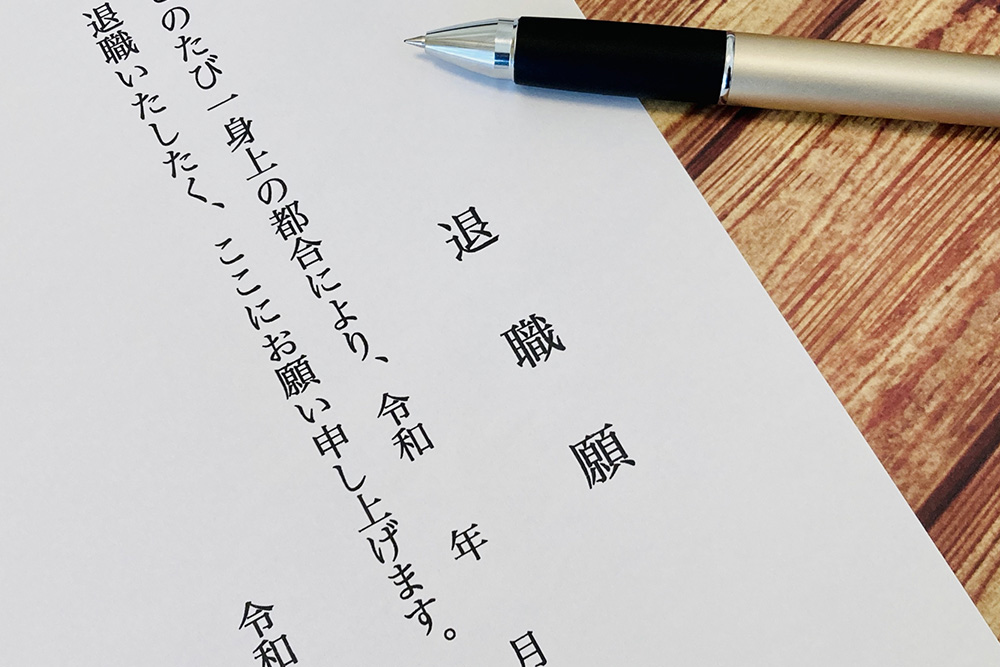 退職願
このたび一身上の都合により、令和 年 月
退職いたしたく、ここにお願い申し上げます。
令和